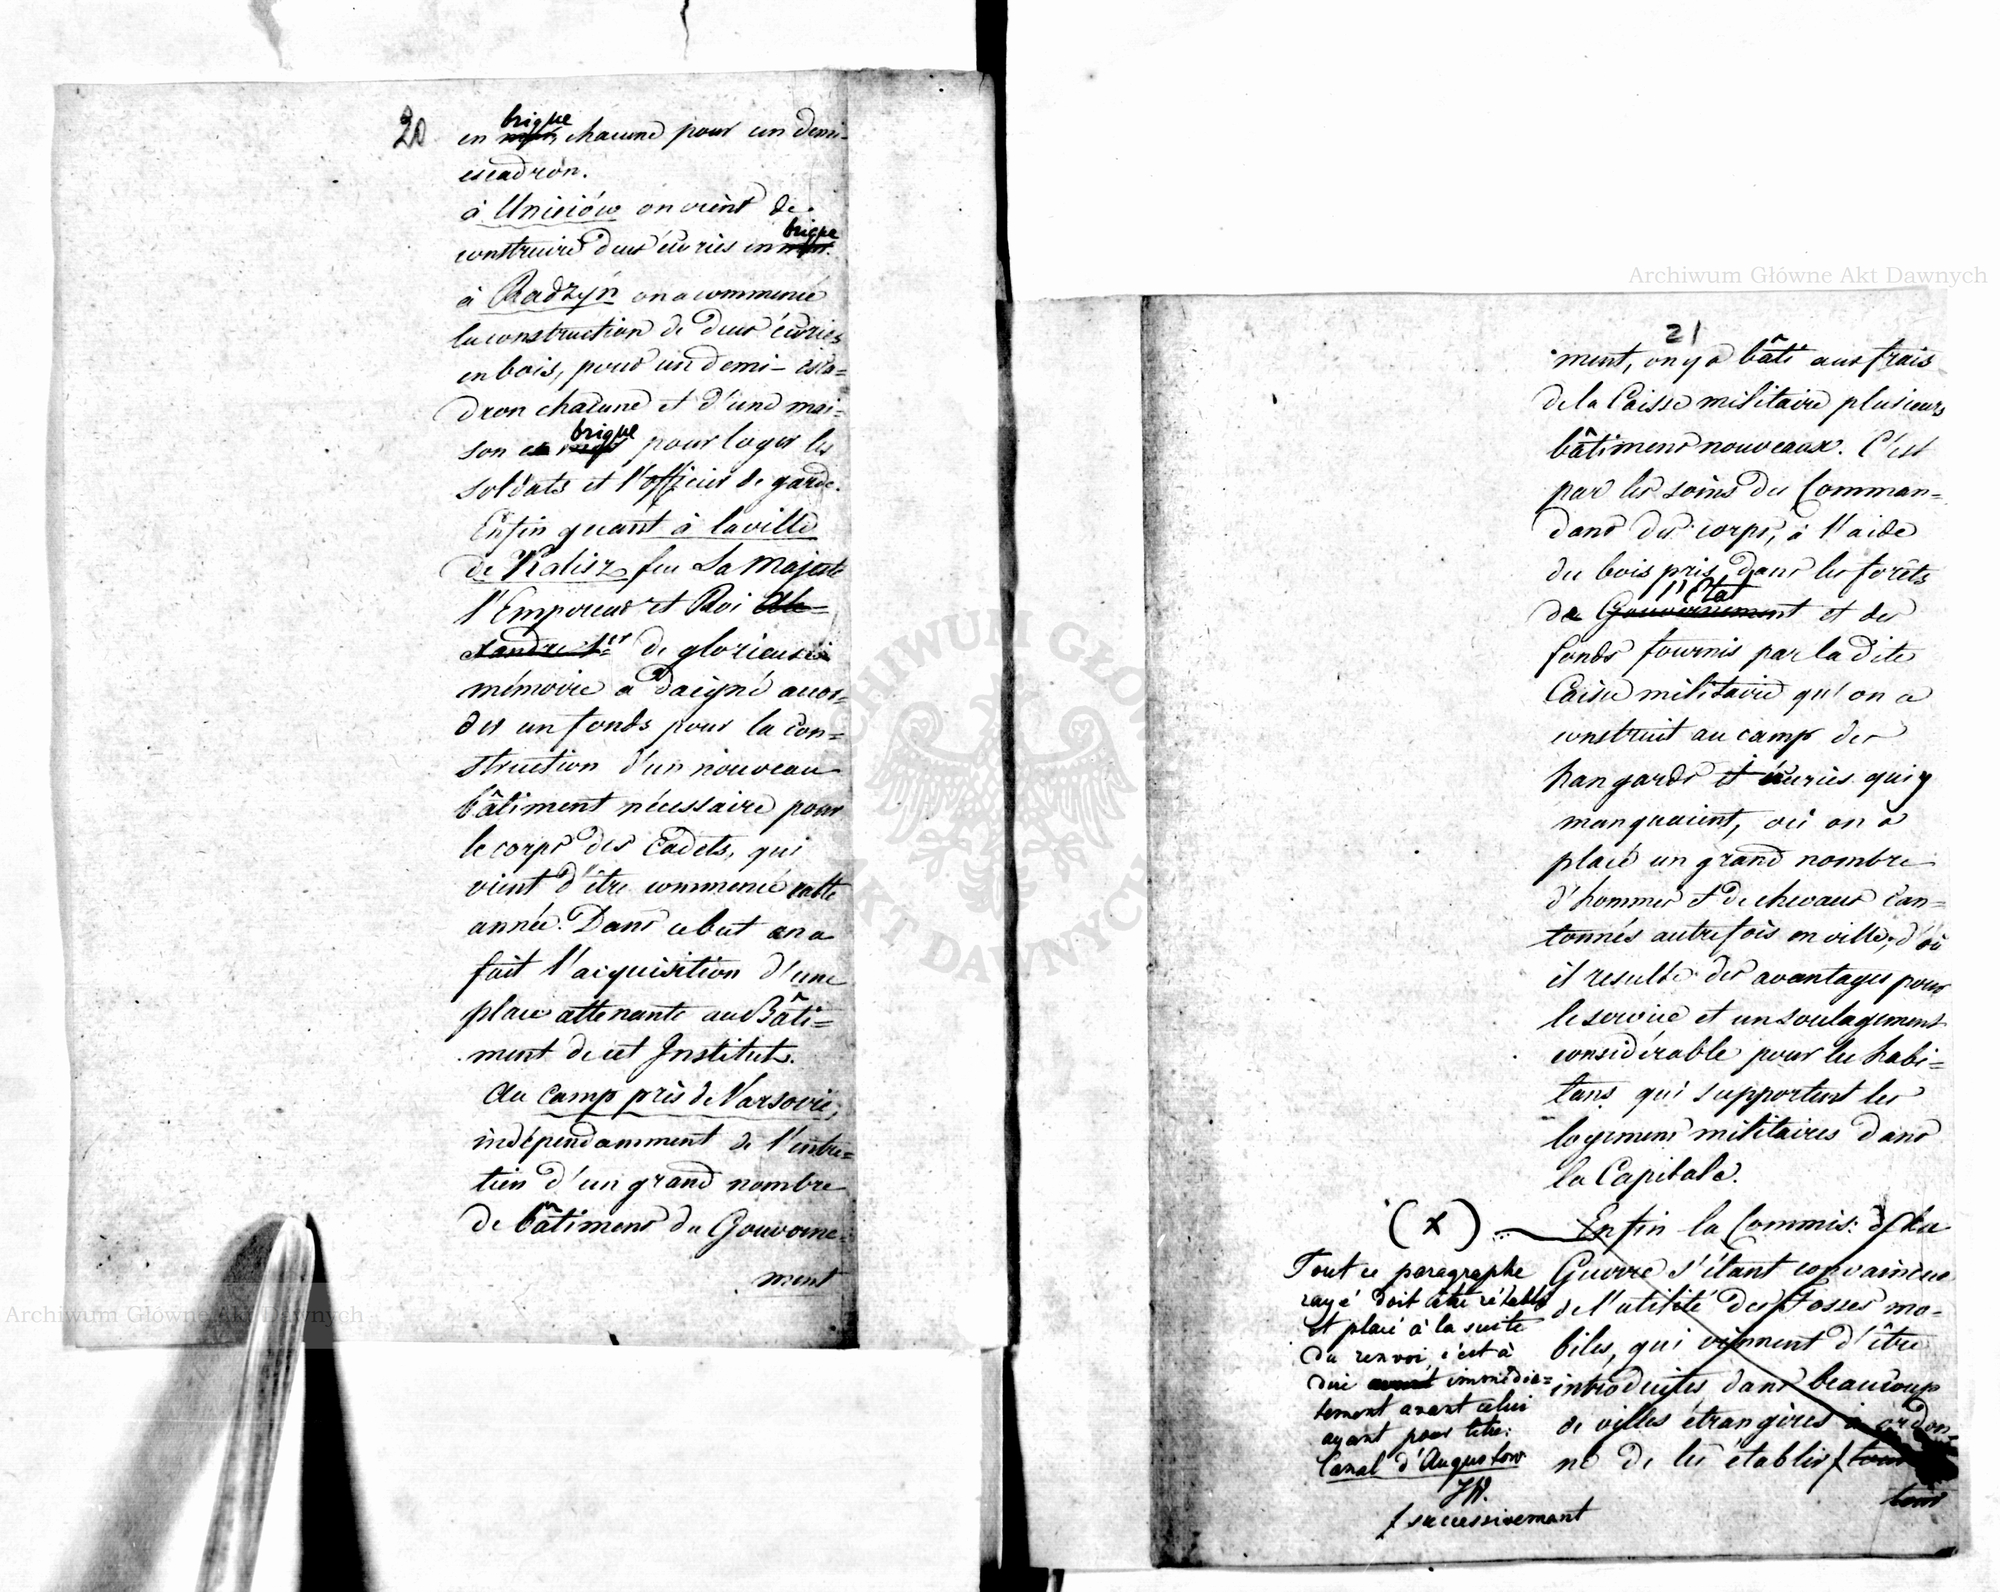 20
brique
en chacune pour un demi-
escadron.
à Unieiów on vient de
brique
construire deux écuries en
à Radzyń on a commencé
la construction de deux écuries
en bois, pour un demi-esca=
dron chacune et d'une mai=
brique
son en pour loger les
soldats et l'officier de garde.
Enfin quant à la ville
de Kalisz feu Sa Majesté
l'Empereur et Roi Ale=
xandre 1er de glorieuse
mémoire a daigné accor=
der un fonds pour la con=
struction d'un nouveau
bâtiment nécessaire pour
le corps des Cadets, qui
vient d'être commencé cette
année. Dans ce but on a
fait l'acquisition d'une
place attenante au Bâti=
ment de cet Institut.
Au camp près de Varsovie,
indépendamment de l'entre=
tien d'un grand nombre
de bâtimens du Gouverne=
ment
21
ment, on y a bâti aux frais
de la Caisse militaire plusieurs
bâtimens nouveaux. C'est
par les soins des Comman=
dans des corps, à l'aide
du bois pris dans les forêts
l'Etat
de Gouvernement et des
fonds fournis par la dite
Caisse militaire qu'on a
construit au camp des
hangards et écuries qui y
manquaient, où on a
placé un grand nombre
d'hommes et de chevaux can=
tonnés autrefois en ville, d'où
il resulte des avantages pour
le service et un soulagement
considérable pour les habi=
tans qui supportent les
logemens militaires dans
la Capitale.
(x) Enfin la Commis: de la
Guerre s'étant convaincue
de l'utilité des fosses mo=
biles, qui viennent d'être
introduites dans beaucoup
de villes étrangères a ordon=
né de les établir tour
tour
Tout ce paragraphe
rayé doit être rétabli
et placé à la suite
du renvoi, c'est à
dire avant immédia=
tement avant celui
ayant pour titre:
Canal d'Augustow
successivement
Archiwum Główne Akt Dawnych
Archiwum Główne Akt Dawnych
ARCHIWUM GŁÓWNE AKT DAWNYCH